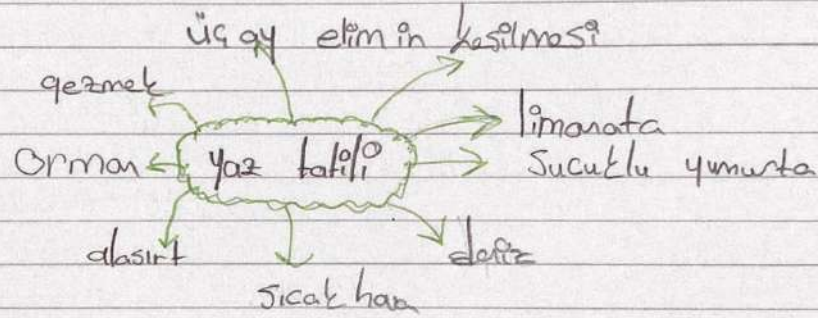 üç ay elimin kesilmesi
gezmek
limonata
Orman yaz tatili Sucuklu yumurta
alasırt deniz
sıcak hava